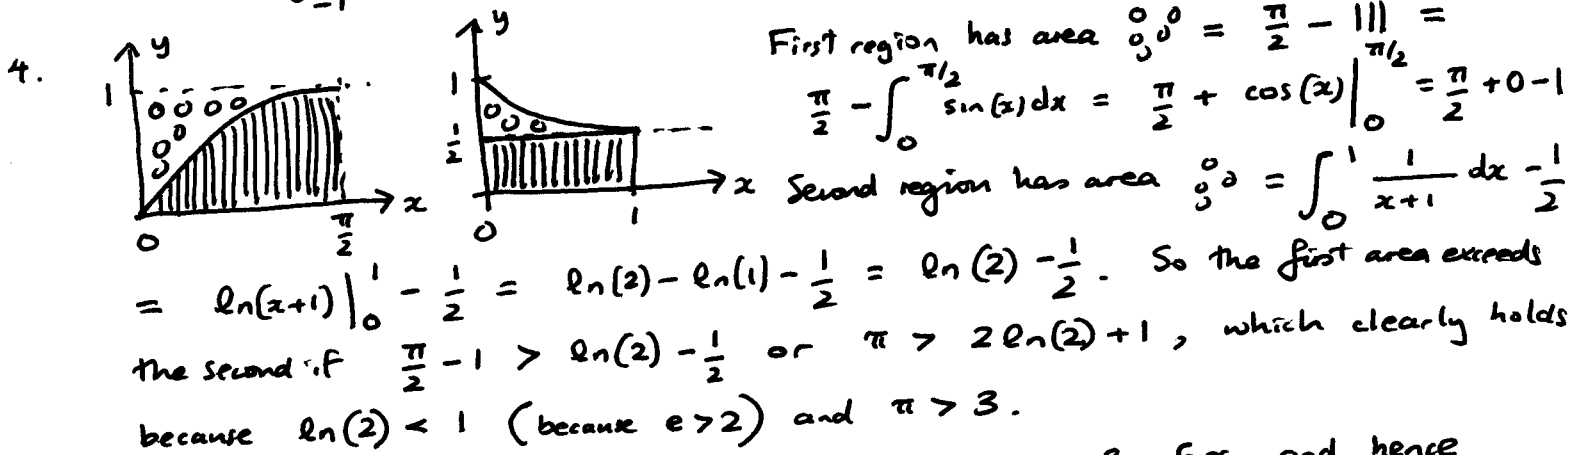 -1
4.
y
1
0
π/2
x
y
1
1/2
0
1
x
First region has area = π/2 - ||| =
π/2 - ∫₀^{π/2} sin(x)dx = π/2 + cos(x)|₀^{π/2} = π/2 + 0 - 1
Second region has area = ∫₀¹ 1/(x+1) dx - 1/2
= ln(x+1)|₀¹ - 1/2 = ln(2) - ln(1) - 1/2 = ln(2) - 1/2. So the first area exceeds
the second if π/2 - 1 > ln(2) - 1/2 or π > 2ln(2)+1, which clearly holds
because ln(2) < 1 (because e>2) and π > 3.
and hence